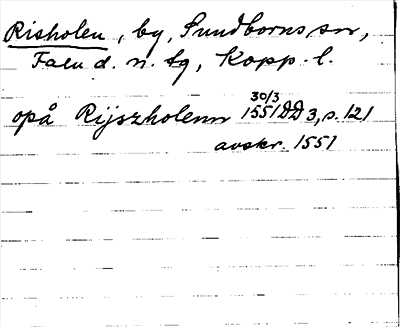 Risholen, by, Sundborns sn,
Falu d. n. tg, Kopp. l.
opå Rijszholenn 30/3 1551 DD 3, s. 121
avskr. 1551